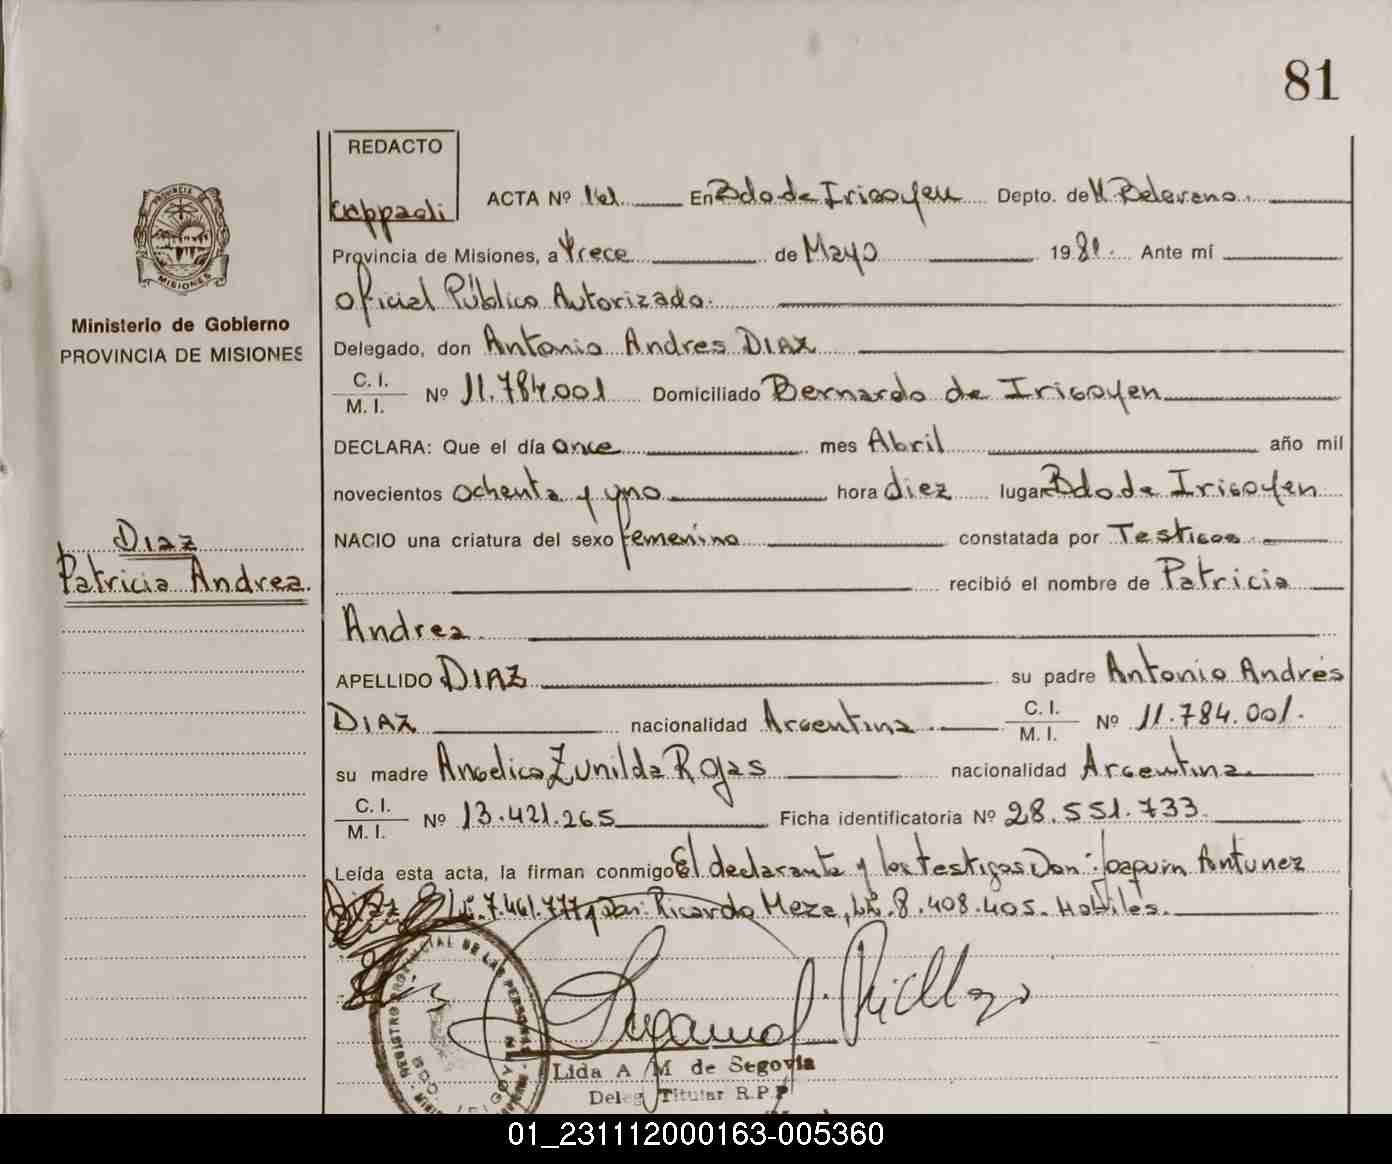 81
REDACTO
ACTA Nº 161 En Bdo de Irigoyen Depto. de M. Belgrano.
Provincia de Misiones, a trece de Mayo 1981. Ante mí
Oficial Público Autorizado.
Delegado, don Antonio Andres DIAZ
C. I.
M. I.
Nº 11.784.001 Domiciliado Bernardo de Irigoyen
DECLARA: Que el día once mes Abril año mil
novecientos ochenta y uno hora diez lugar Bdo de Irigoyen
NACIO una criatura del sexo femenino constatada por Testigos
recibió el nombre de Patricia
Andrea
APELLIDO DIAZ su padre Antonio Andrés
DIAZ nacionalidad Argentina C. I.
M. I.
Nº 11.784.001.
su madre Angelica Zunilda Rojas nacionalidad Argentina
C. I.
M. I.
Nº 13.421.265 Ficha identificatoria Nº 28.551.733.
Leída esta acta, la firman conmigo El declarante y los testigos Don: Joaquin Antunez
L.E. 7.461.777 y Don: Ricardo Meza, L.E. 8.408.405. Hábiles.
Lida A M de Segovia
Deleg Titular R.P.P
PROVINCIA DE
MISIONES
Ministerio de Gobierno
PROVINCIA DE MISIONES
Diaz
Patricia Andrea.
REGISTRO PROVINCIAL DE LAS PERSONAS
01_231112000163-005360